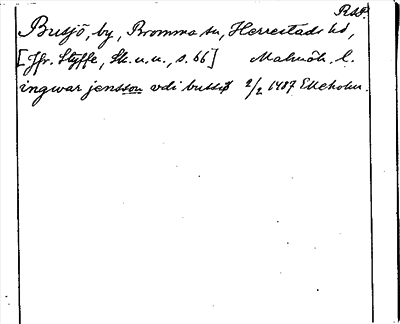 RAP.
Bussjö, by, Bromma sn, Herrestads hd,
[Jfr. Styffe, Sk. u. u., s. 66] Malmöh. l.
ingwar jensson vdi bussiø 2/2 1487 Elleholm.